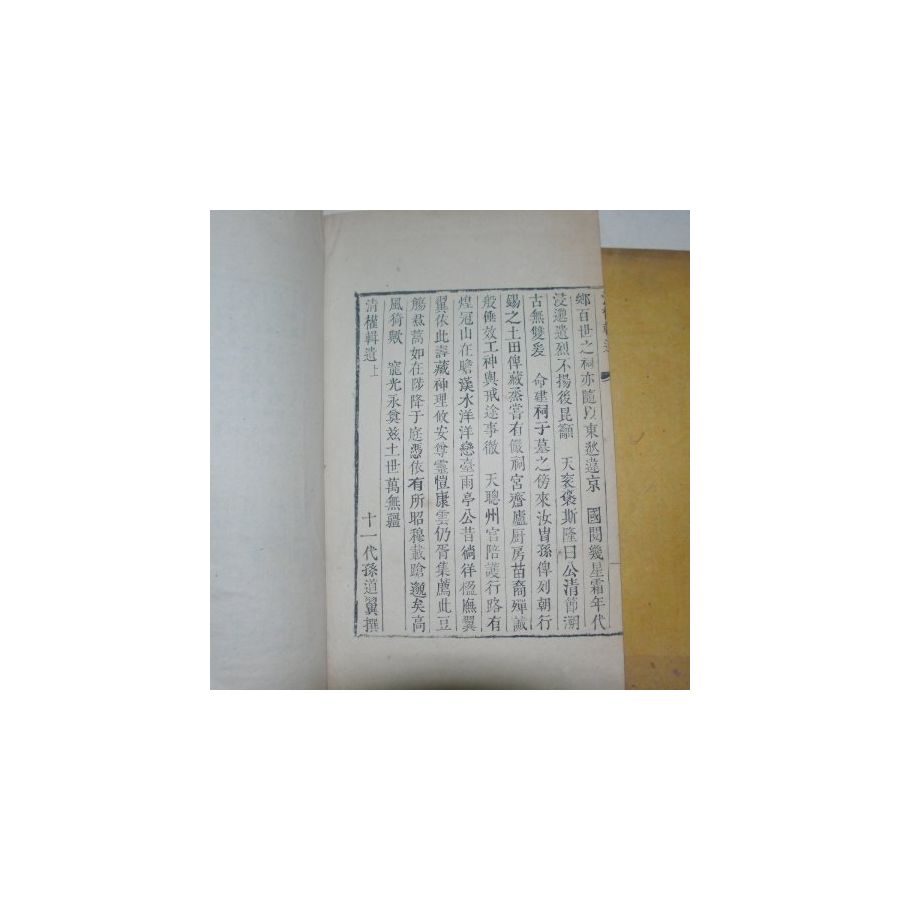 鄉百世之祠亦隨以東愁違京　國閱幾星霜年代
浸邈遺烈不揚後昆籲　天衮褒斯隆曰公清節溯
古無雙爰　命建祠于墓之傍來汝胄孫俾列朝行
錫之土田俾藏烝嘗有儼祠宮齊廬厨房苗裔殫誠
般倕效工神輿戒途事徹　天聰州官陪護行路有
煌冠山在瞻漢水洋洋巒臺雨亭公昔徜徉楹廡翼
翼依此壽藏神理攸安尊靈愷康雲仍胥集薦此豆
觴焄蒿如在陟降于庭憑依有所昭穆載蹌邈矣高
風猗歟　寵光永奠茲土世萬無疆
十一代孫道翼撰
清權輯遺上